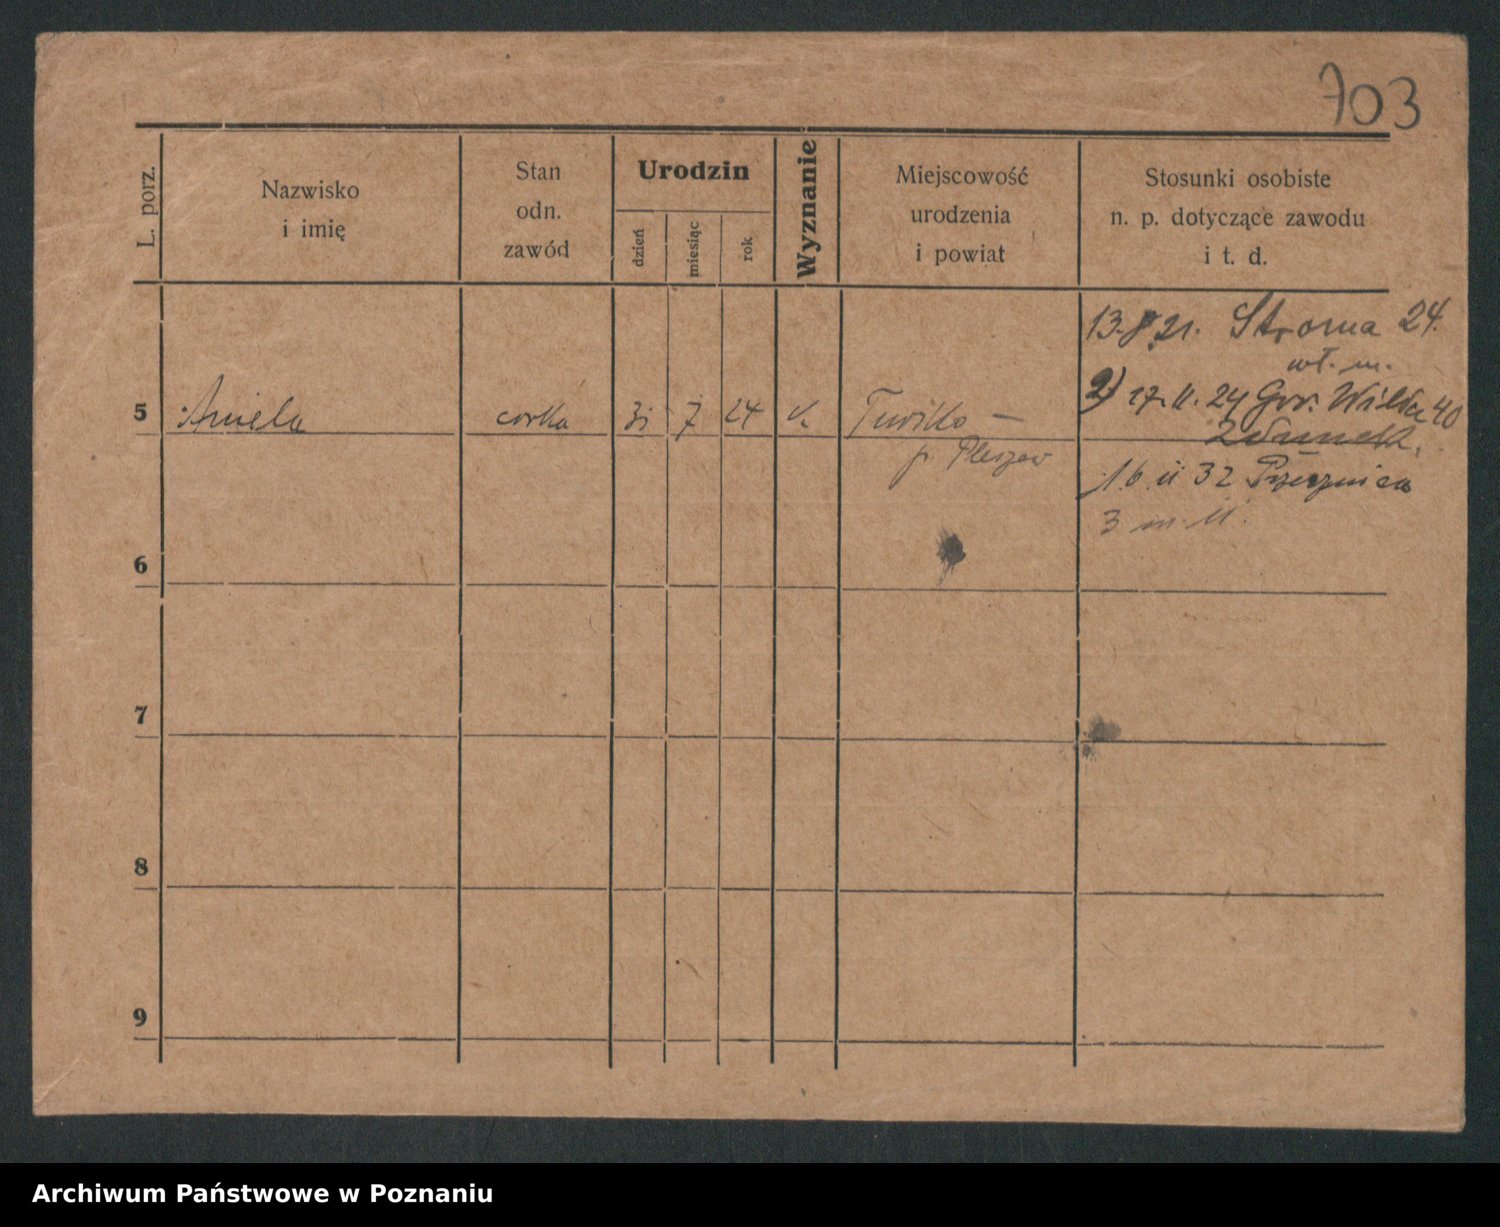 703
L. porz.
Nazwisko
i imię
Stan
odn.
zawód
Urodzin
dzień
miesiąc
rok
Wyznanie
Miejscowość
urodzenia
i powiat
Stosunki osobiste
n. p. dotyczące zawodu
i t. d.
13. 8. 21. Stroma 24.
wł. m.
2) 17. 11. 24 Gór. Wilda 40
5 Aniela corka 31 7 24 k. Tursko —
p. Pleszew
16 11 32
3 m. 11.
6
7
8
9
Archiwum Państwowe w Poznaniu